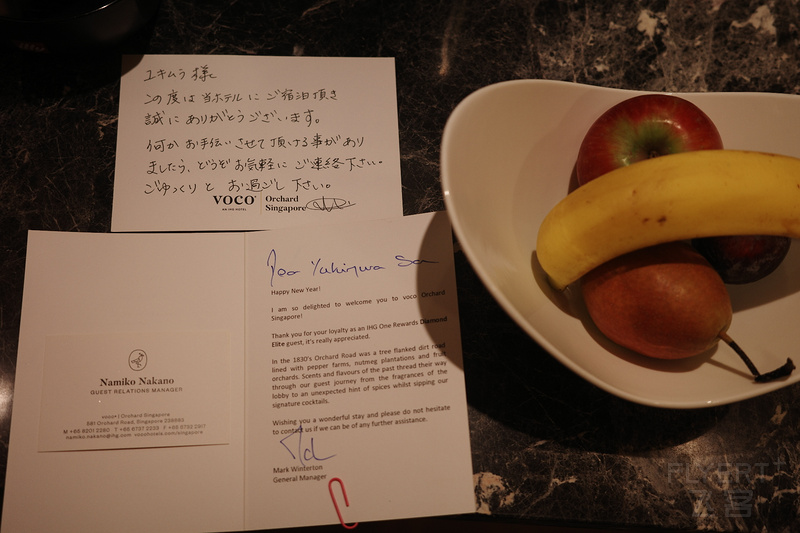 ユキムラ 様
この度は当ホテルにご宿泊頂き
誠にありがとうございます。
何かお手伝いさせて頂ける事があり
ましたら、どうぞお気軽にご連絡下さい。
ごゆっくりと お過ごし下さい。
VOCO
AN IHG HOTEL
Orchard
Singapore
Happy New Year!
I am so delighted to welcome you to voco Orchard
Singapore!
Thank you for your loyalty as an IHG One Rewards Diamond
Elite guest, it's really appreciated.
In the 1830's Orchard Road was a tree flanked dirt road
lined with pepper farms, nutmeg plantations and fruit
orchards. Scents and flavours of the past thread their way
through our guest journey from the fragrances of the
lobby to an unexpected hint of spices whilst sipping our
signature cocktails.
Wishing you a wonderful stay and please do not hesitate
to contact us if we can be of any further assistance.
Mark Winterton
General Manager
Namiko Nakano
GUEST RELATIONS MANAGER
voco Orchard Singapore
581 Orchard Road, Singapore 238883
namiko.nakano@ihg.com vocohotels.com/singapore